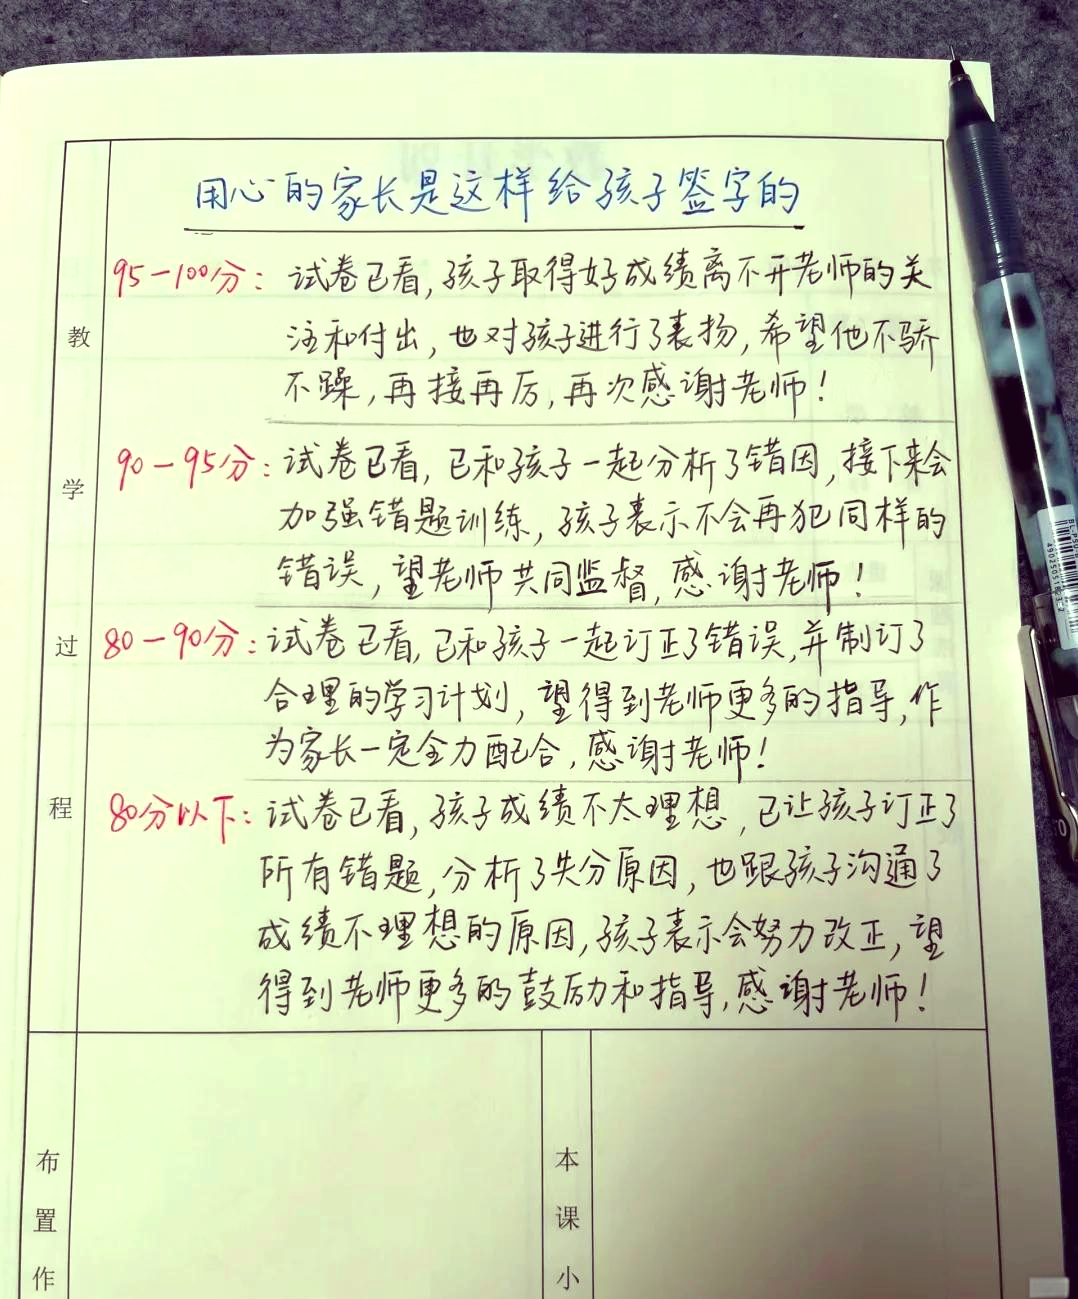 用心的家长是这样给孩子签字的
95-100分: 试卷已看,孩子取得好成绩离不开老师的关
注和付出,也对孩子进行了表扬,希望他不骄
不躁,再接再厉,再次感谢老师!
90-95分: 试卷已看,已和孩子一起分析了错因,接下来会
加强错题训练,孩子表示不会再犯同样的
错误,望老师共同监督,感谢老师!
80-90分: 试卷已看,已和孩子一起订正了错误,并制订了
合理的学习计划,望得到老师更多的指导,作
为家长一定全力配合,感谢老师!
80分以下: 试卷已看,孩子成绩不太理想,已让孩子订正了
所有错题,分析了失分原因,也跟孩子沟通了
成绩不理想的原因,孩子表示会努力改正,望
得到老师更多的鼓励和指导,感谢老师!
教
学
过
程
布
置
作
本
课
小